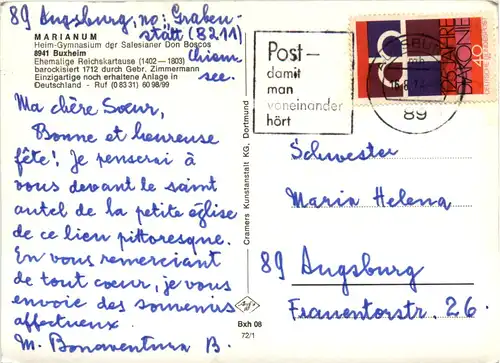 89 Augsburg, no: Graben-
stätt (8211)
Chiem
see.
MARIANUM
Heim-Gymnasium der Salesianer Don Boscos
8941 Buxheim
Ehemalige Reichskartause (1402—1803)
barockisiert 1712 durch Gebr. Zimmermann
Einzigartige noch erhaltene Anlage in
Deutschland - Ruf (0 83 31) 60 98/99
Ma chère Soeur,
Bonne et heureuse
fête! Je penserai à
vous devant le saint
autel de la petite église
de ce lieu pittoresque.
En vous remerciant
de tout coeur, je vous
envoie des souvenirs
affectueux.
M. Bonaventura B.
Cramers Kunstanstalt KG, Dortmund
Bxh 08
72/1
Post—
damit
man
voneinander
hört
89
DIAKONIE
40
Schwester
Maria Helena
89 Augsburg
Frauentorstr. 26.